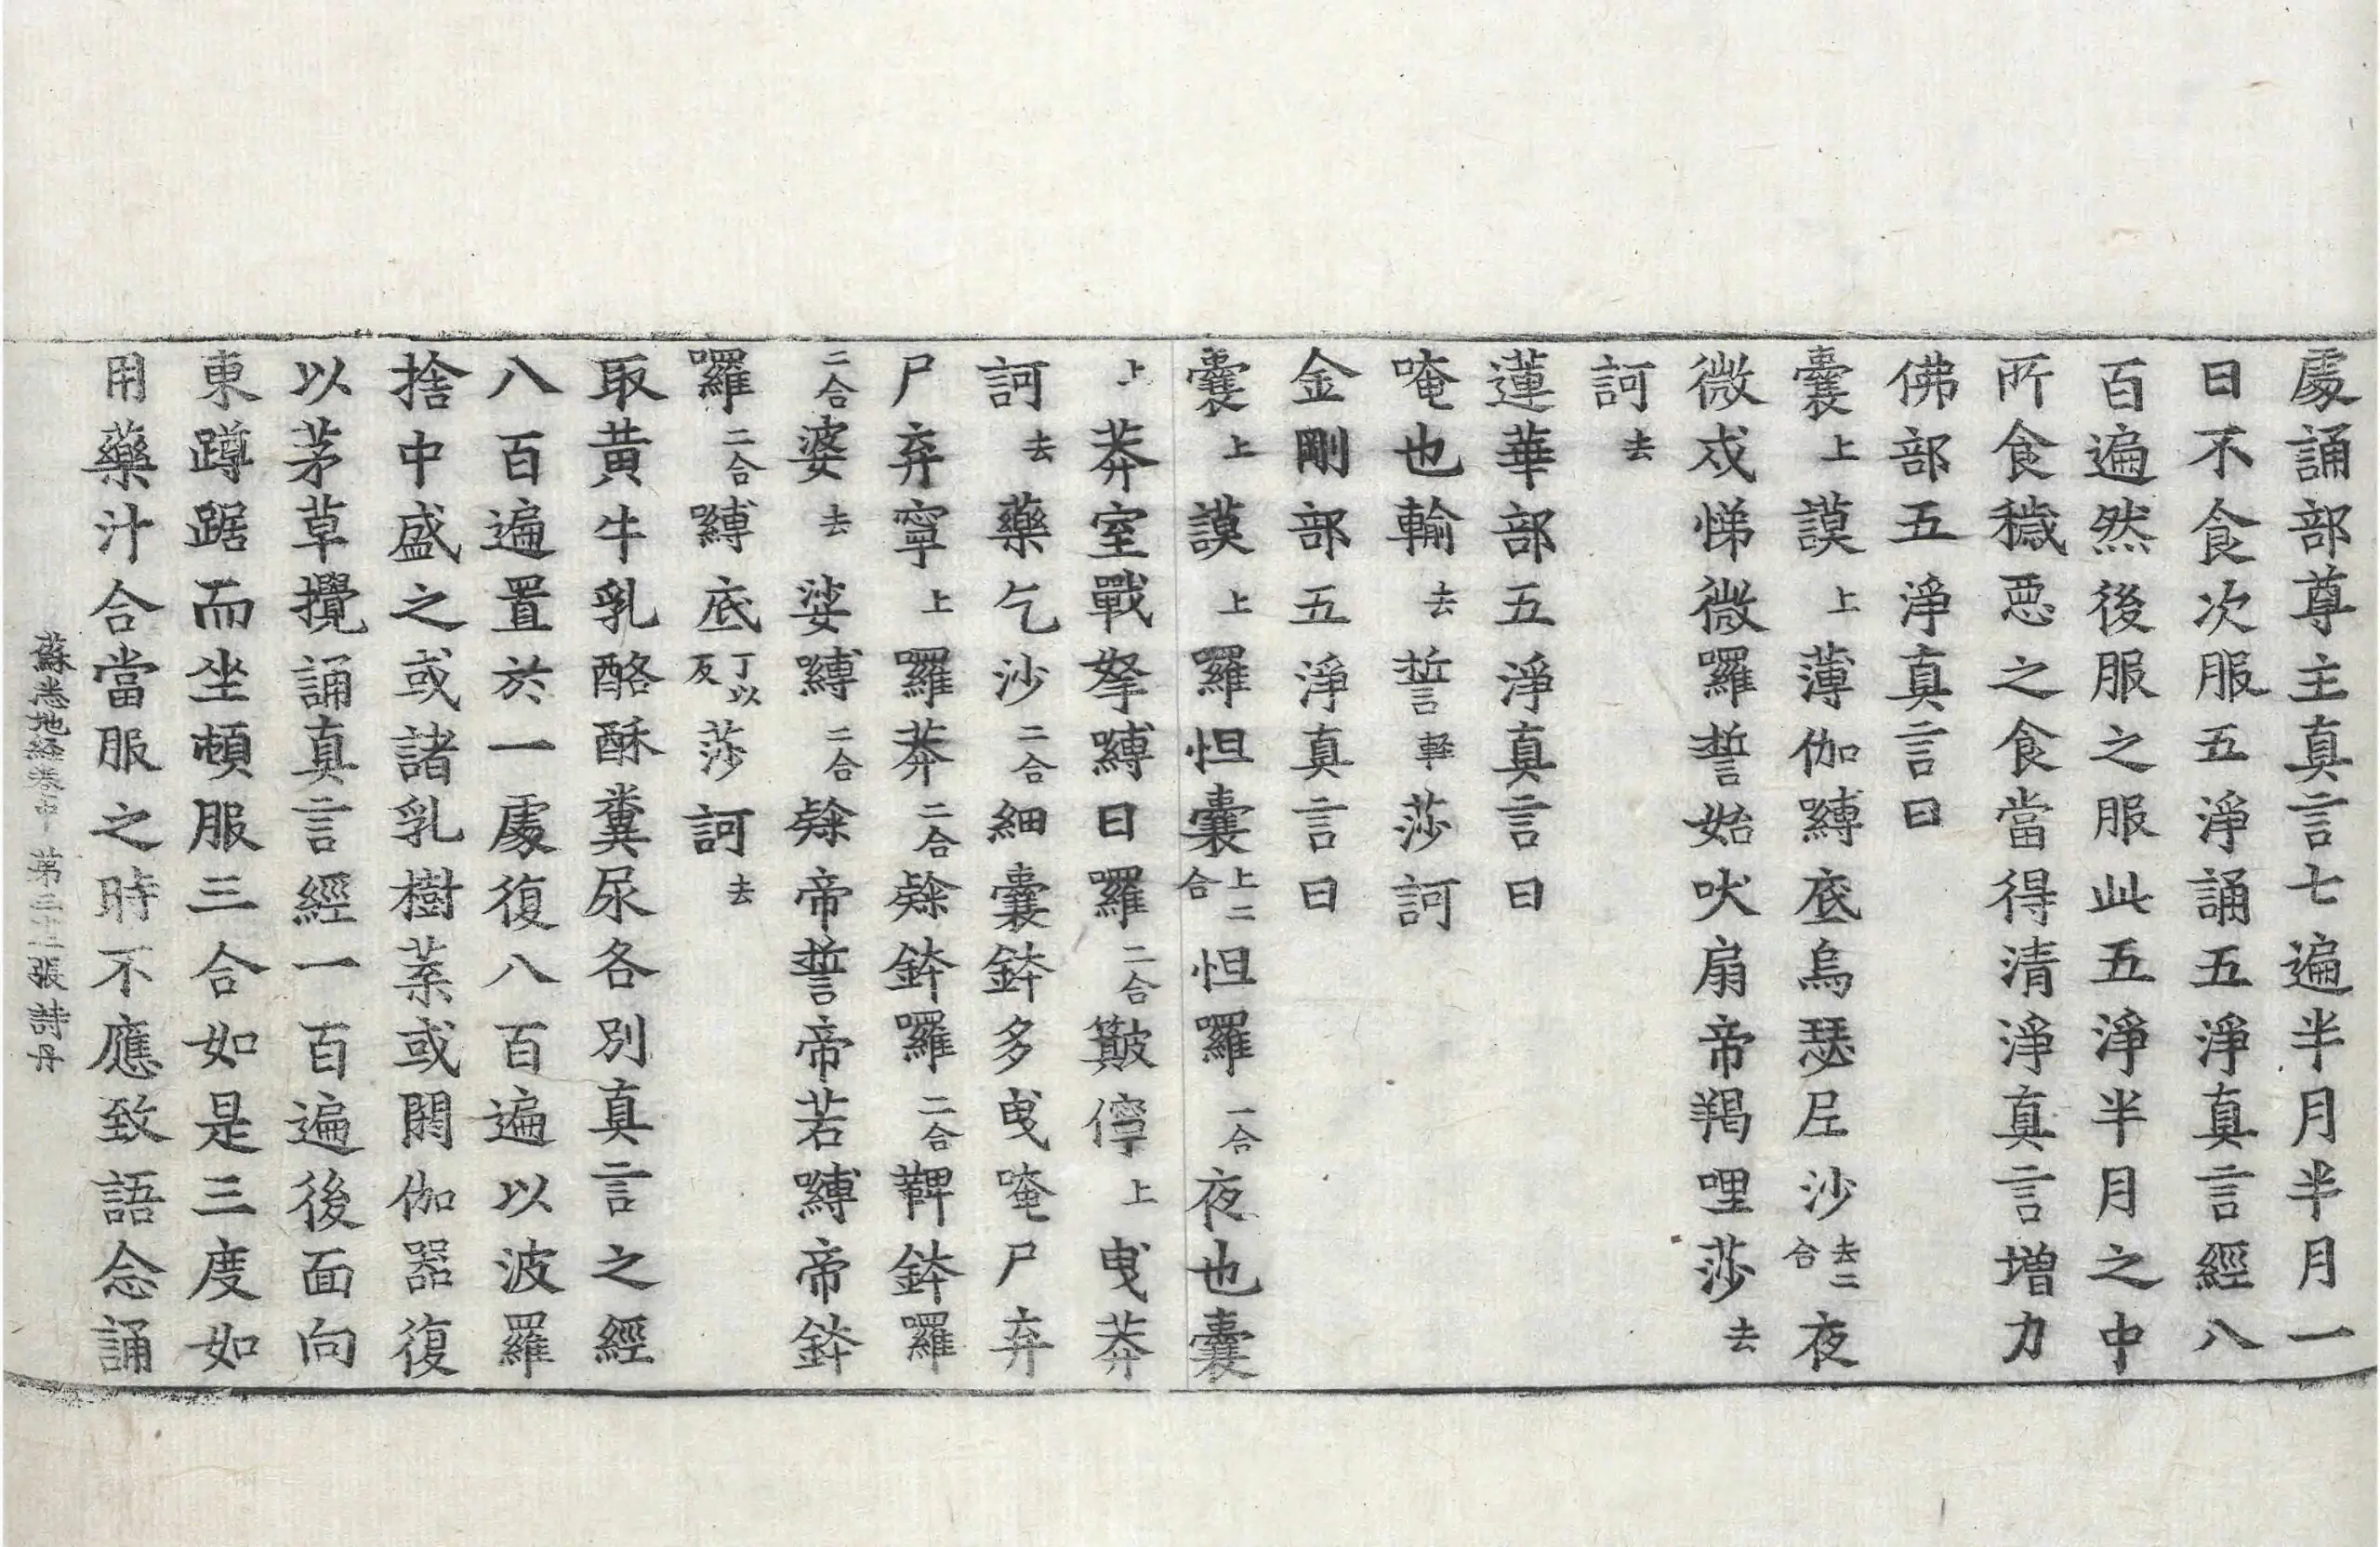 處誦部尊主真言七遍半月半月一
日不食次服五淨誦五淨真言經八
百遍然後服之服此五淨半月之中
所食穢惡之食當得清淨真言增力
佛部五淨真言曰
囊上謨上薄伽嚩底烏瑟𡰱沙去二合夜
微戍悌微囉誓始吠扇帝羯哩莎去
訶去
蓮華部五淨真言曰
唵也輸去誓軽莎訶
金剛部五淨真言曰
囊上謨上羅怛囊上二合怛羅一合夜也囊
上莽室戰拏嚩日羅二合簸儜上曳莽
訶去藥乞沙二合細囊鉢多曳唵尸弃
尸弃寧上羅莽二合㘑鉢羅二合鞞鉢囉
二合婆去娑嚩二合㘑帝誓帝若嚩帝鉢
囉二合嚩底丁以反莎訶去
取黃牛乳酪酥糞尿各別真言之經
八百遍置於一處復八百遍以波羅
捨中盛之或諸乳樹葉或閼伽器復
以茅草攪誦真言經一百遍後面向
東蹲踞而坐頓服三合如是三度如
用藥汁合當服之時不應致語念誦
蘇悉地經卷中 第三十二張 詩丹